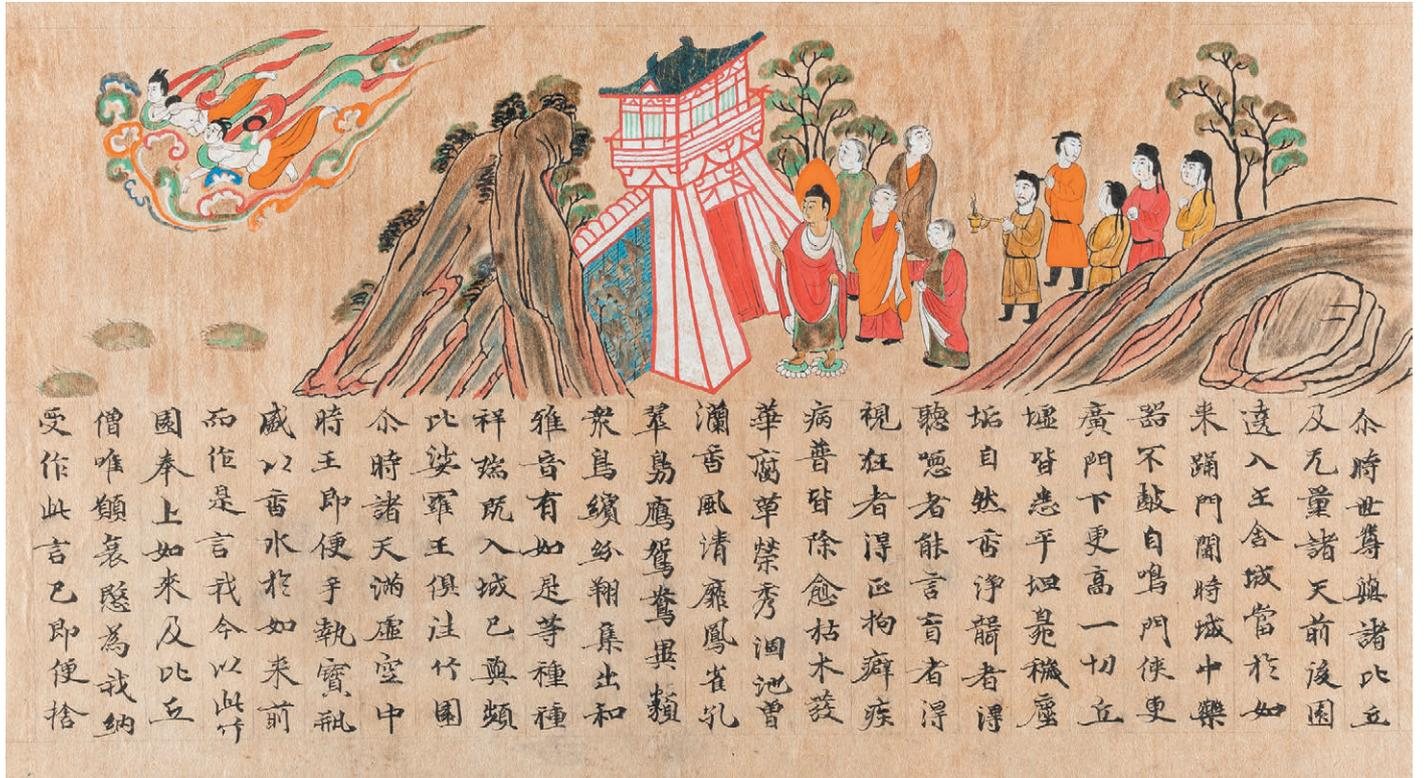 尒時世尊與諸比丘
及无量諸天前後圍
遶入王舍城當於如
来踊門閫時城中樂
器不皷自鳴門侠更
廣門下更高一切丘
墟皆悉平坦臰穢塵
垢自然香浄聾者得
聽啞者能言盲者得
視狂者得正拘癖疾
病普皆除愈枯木發
華腐草榮秀涸池曽
瀾香風清靡鳳雀孔
翠鳬鴈鴛鴦異類
衆鳥繽紛翔集出和
雅音有如是等種種
祥瑞既入城已與頻
比娑羅王俱往竹園
尒時諸天滿虛空中
時王即便手執寳瓶
盛以香水於如来前
而作是言我今以此竹
園奉上如来及比丘
僧唯願哀愍為我納
受作此言已即便捨